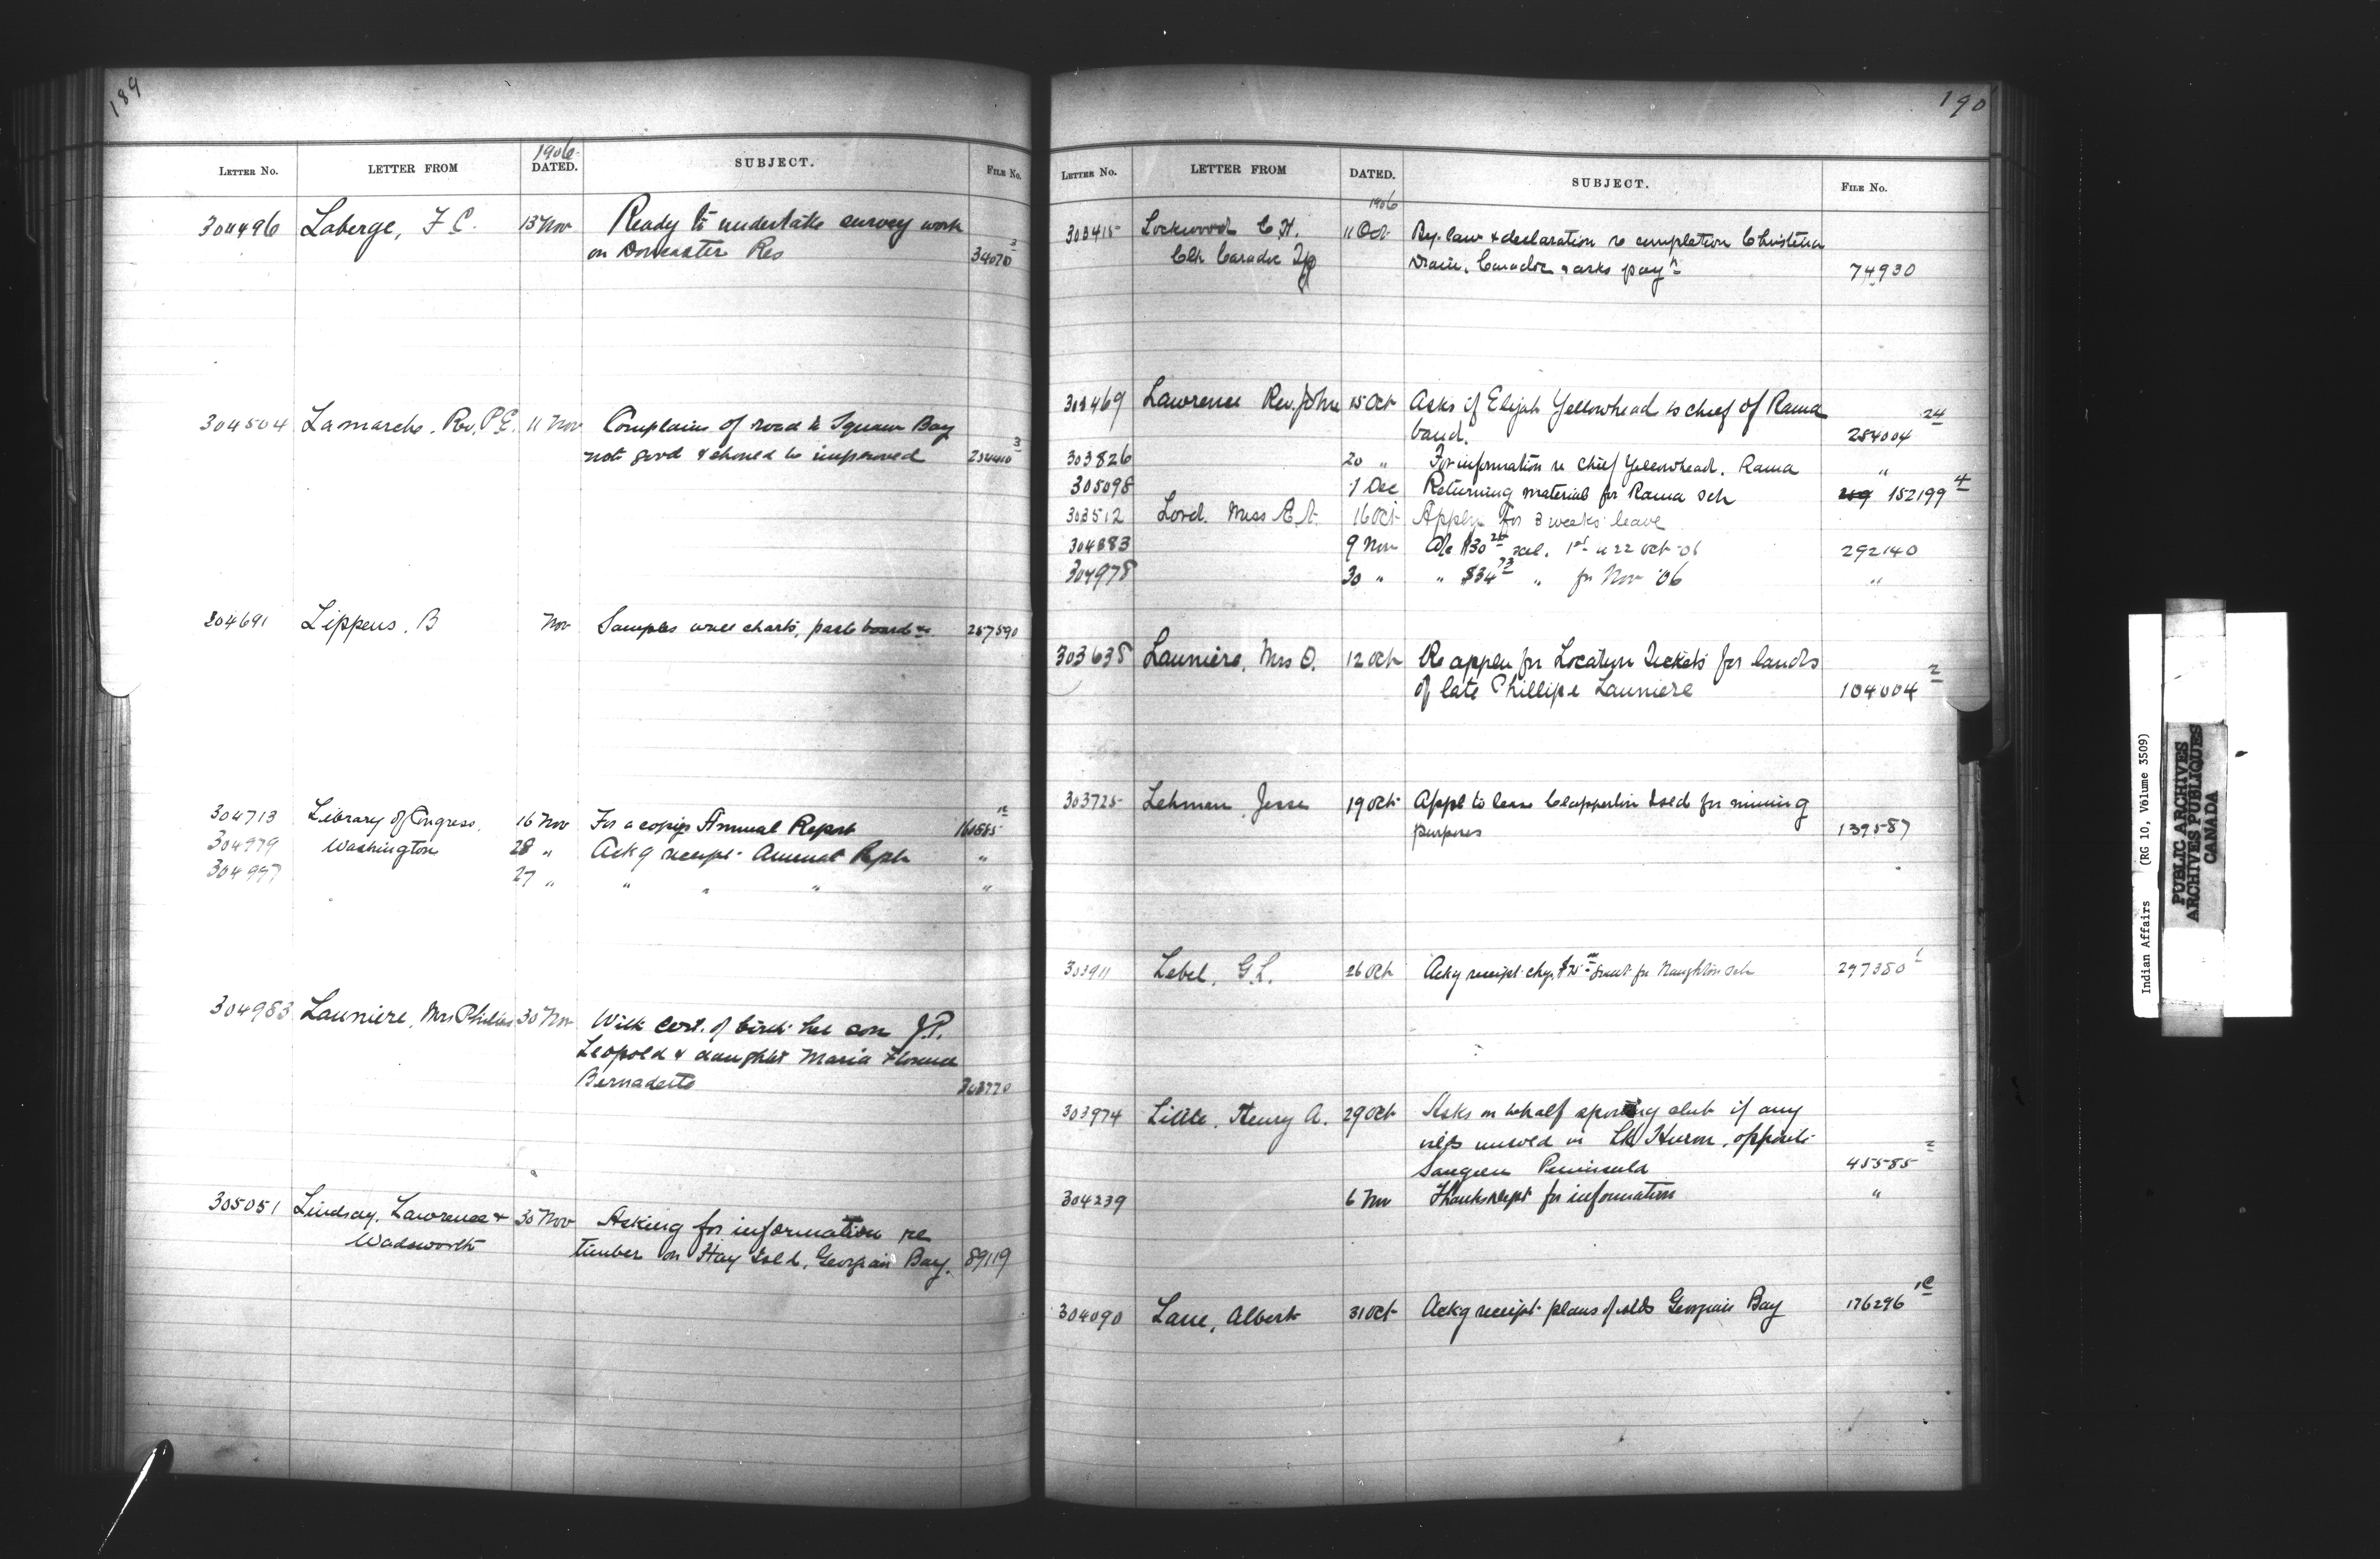 189
LETTER No. LETTER FROM 1906 DATED. SUBJECT. FILE No.
304496 Laberge, F. C. 13 Nov Ready to undertake survey work
on Doncaster Res 34070 3
304504 Lamarche, Rev. P. E. 11 Nov Complains of road to Squaw Bay
not good & should be improved 3
304691 Lippens, B Nov Samples wall charts, paste board &c. 257590
304713 Library of Congress, 16 Nov For a copy Annual Report
304979 Washington 28 " Ackg receipt Annual Rpt "
304997 27 " " " " "
304983 Launiere, Mrs Philippe 30 Nov With cert. of birth her son J.P.
Leopold & daughter Maria Florence
Bernadette 303770
305051 Lindsay, Lawrence & 30 Nov Asking for information re
Wadsworth timber on Hay Isld, Georgian Bay. 89119
190
LETTER No. LETTER FROM DATED. SUBJECT. FILE No.
1906
303415 Lockwood C. H. 11 Oct By-law & declaration re completion Christina
Clk Caradoc Tp Drain, Caradoc & asks payt 74930
303469 Lawrence Rev. John 15 Oct Asks if Elijah Yellowhead is chief of Rama
band. 254004 24
303826 20 " For information re Chief Yellowhead, Rama "
305098 1 Dec Returning material for Rama Sch 152199 4
303512 Lord, Miss 16 Oct Appln for 3 weeks leave
304383 9 Nov a/c $30 sal. 1st to 22 Oct '06 292140
304978 30 " " $34 73 " for Nov '06 "
303638 Launiere, Mrs O. 12 Oct Re appln for Location Tickets for lands
of late Phillipe Launiere 104004 2
303725 Lehman, Jesse 19 Oct Appl to lease Clapperton Isld for mining
purposes 139587
303911 Lebel, G. L. 26 Oct Ackg receipt chq. $75 grant for Naughton Sch 297380 1
303974 Little, Henry A. 29 Oct Asks on behalf sporting club if any
islds unsold in Lk Huron, opposite
Saugeen Peninsula 45585 2
304239 6 Nov Thanks dept for information "
304090 Lane, Albert 31 Oct Ackg receipt plans of islds Georgian Bay 176296 1C
Indian Affairs (RG 10, Volume 3509)
PUBLIC ARCHIVES
ARCHIVES PUBLIQUES
CANADA